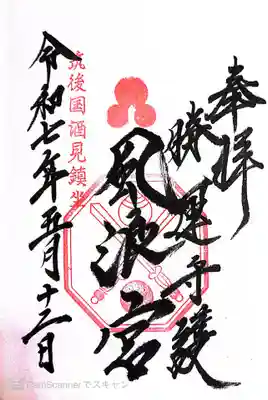 奉拝
勝運守護
風浪宮
筑後国酒見鎮坐
令和七年五月十三日
CamScannerでスキャン